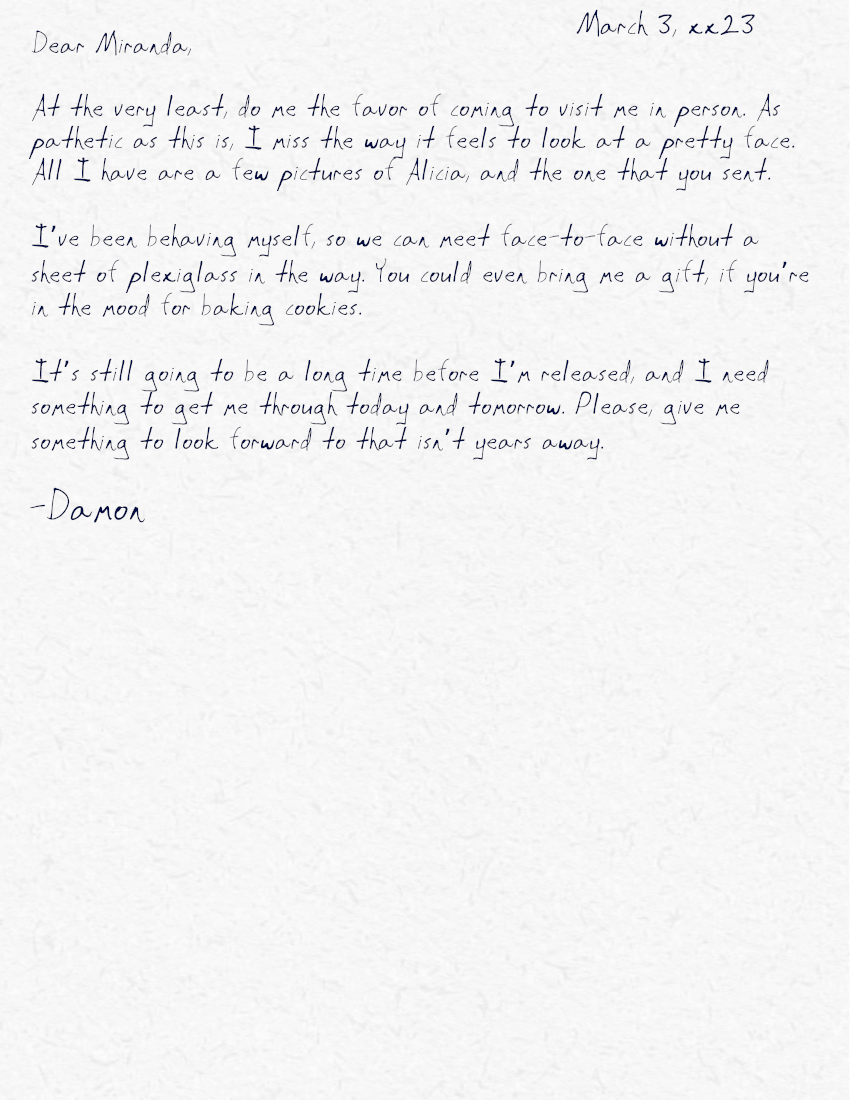 March 3, xx23
Dear Miranda,
At the very least, do me the favor of coming to visit me in person. As
pathetic as this is, I miss the way it feels to look at a pretty face.
All I have are a few pictures of Alicia, and the one that you sent.
I've been behaving myself, so we can meet face-to-face without a
sheet of plexiglass in the way. You could even bring me a gift, if you're
in the mood for baking cookies.
It's still going to be a long time before I'm released, and I need
something to get me through today and tomorrow. Please, give me
something to look forward to that isn't years away.
-Damon